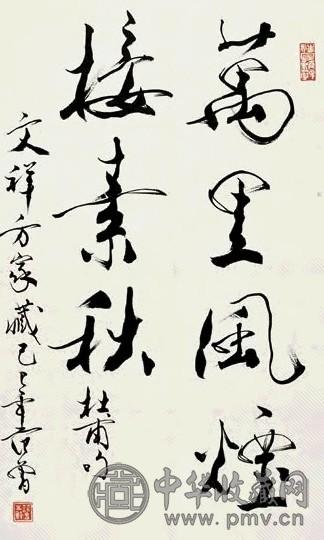 萬里風煙
接素秋
杜甫句
文祥方家藏己丑年范曾
中华收藏网
www.pmv.cn